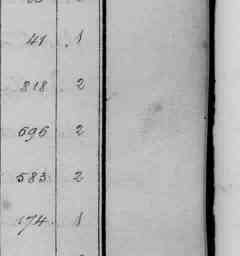 41 1
818 2
696 2
583 2
174 1